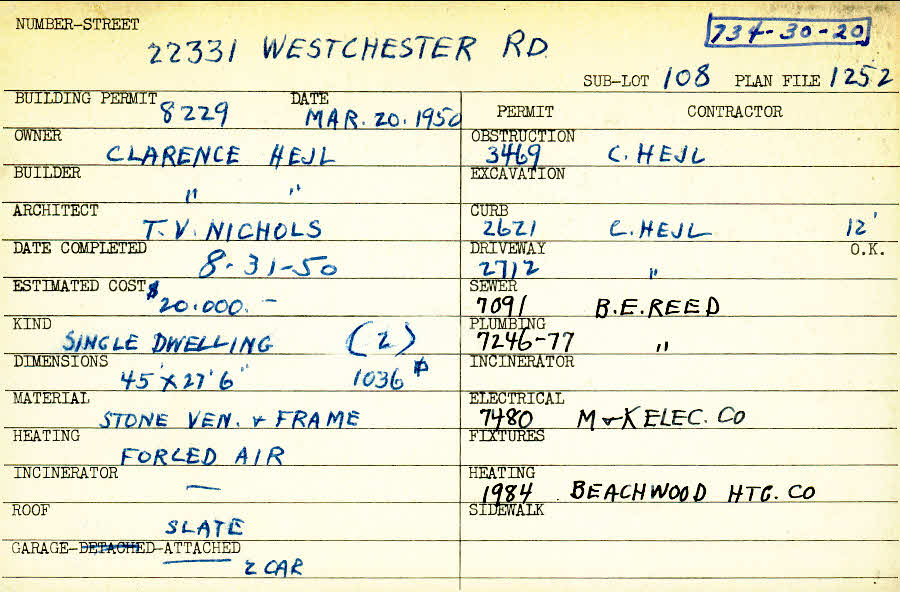 NUMBER-STREET
22331 WESTCHESTER RD.
734-30-20
SUB-LOT 108 PLAN FILE 1252
BUILDING PERMIT 8229 DATE MAR. 20. 1950
PERMIT CONTRACTOR
OWNER CLARENCE HEJL
OBSTRUCTION 3469 C. HEJL
BUILDER " "
EXCAVATION
ARCHITECT T. V. NICHOLS
CURB 2621 C. HEJL 12'
DATE COMPLETED 8-31-50
DRIVEWAY 2712 " O.K.
ESTIMATED COST $20.000.-
SEWER 7091 B.E.REED
KIND SINGLE DWELLING (2)
PLUMBING 7246-77 "
DIMENSIONS 45' X 27'6" 1036
INCINERATOR
MATERIAL STONE VEN. & FRAME
ELECTRICAL 7480 M & K ELEC. CO
HEATING FORCED AIR
FIXTURES
INCINERATOR —
HEATING 1984 BEACHWOOD HTG. CO
ROOF SLATE
SIDEWALK
GARAGE-DETACHED-ATTACHED
2 CAR